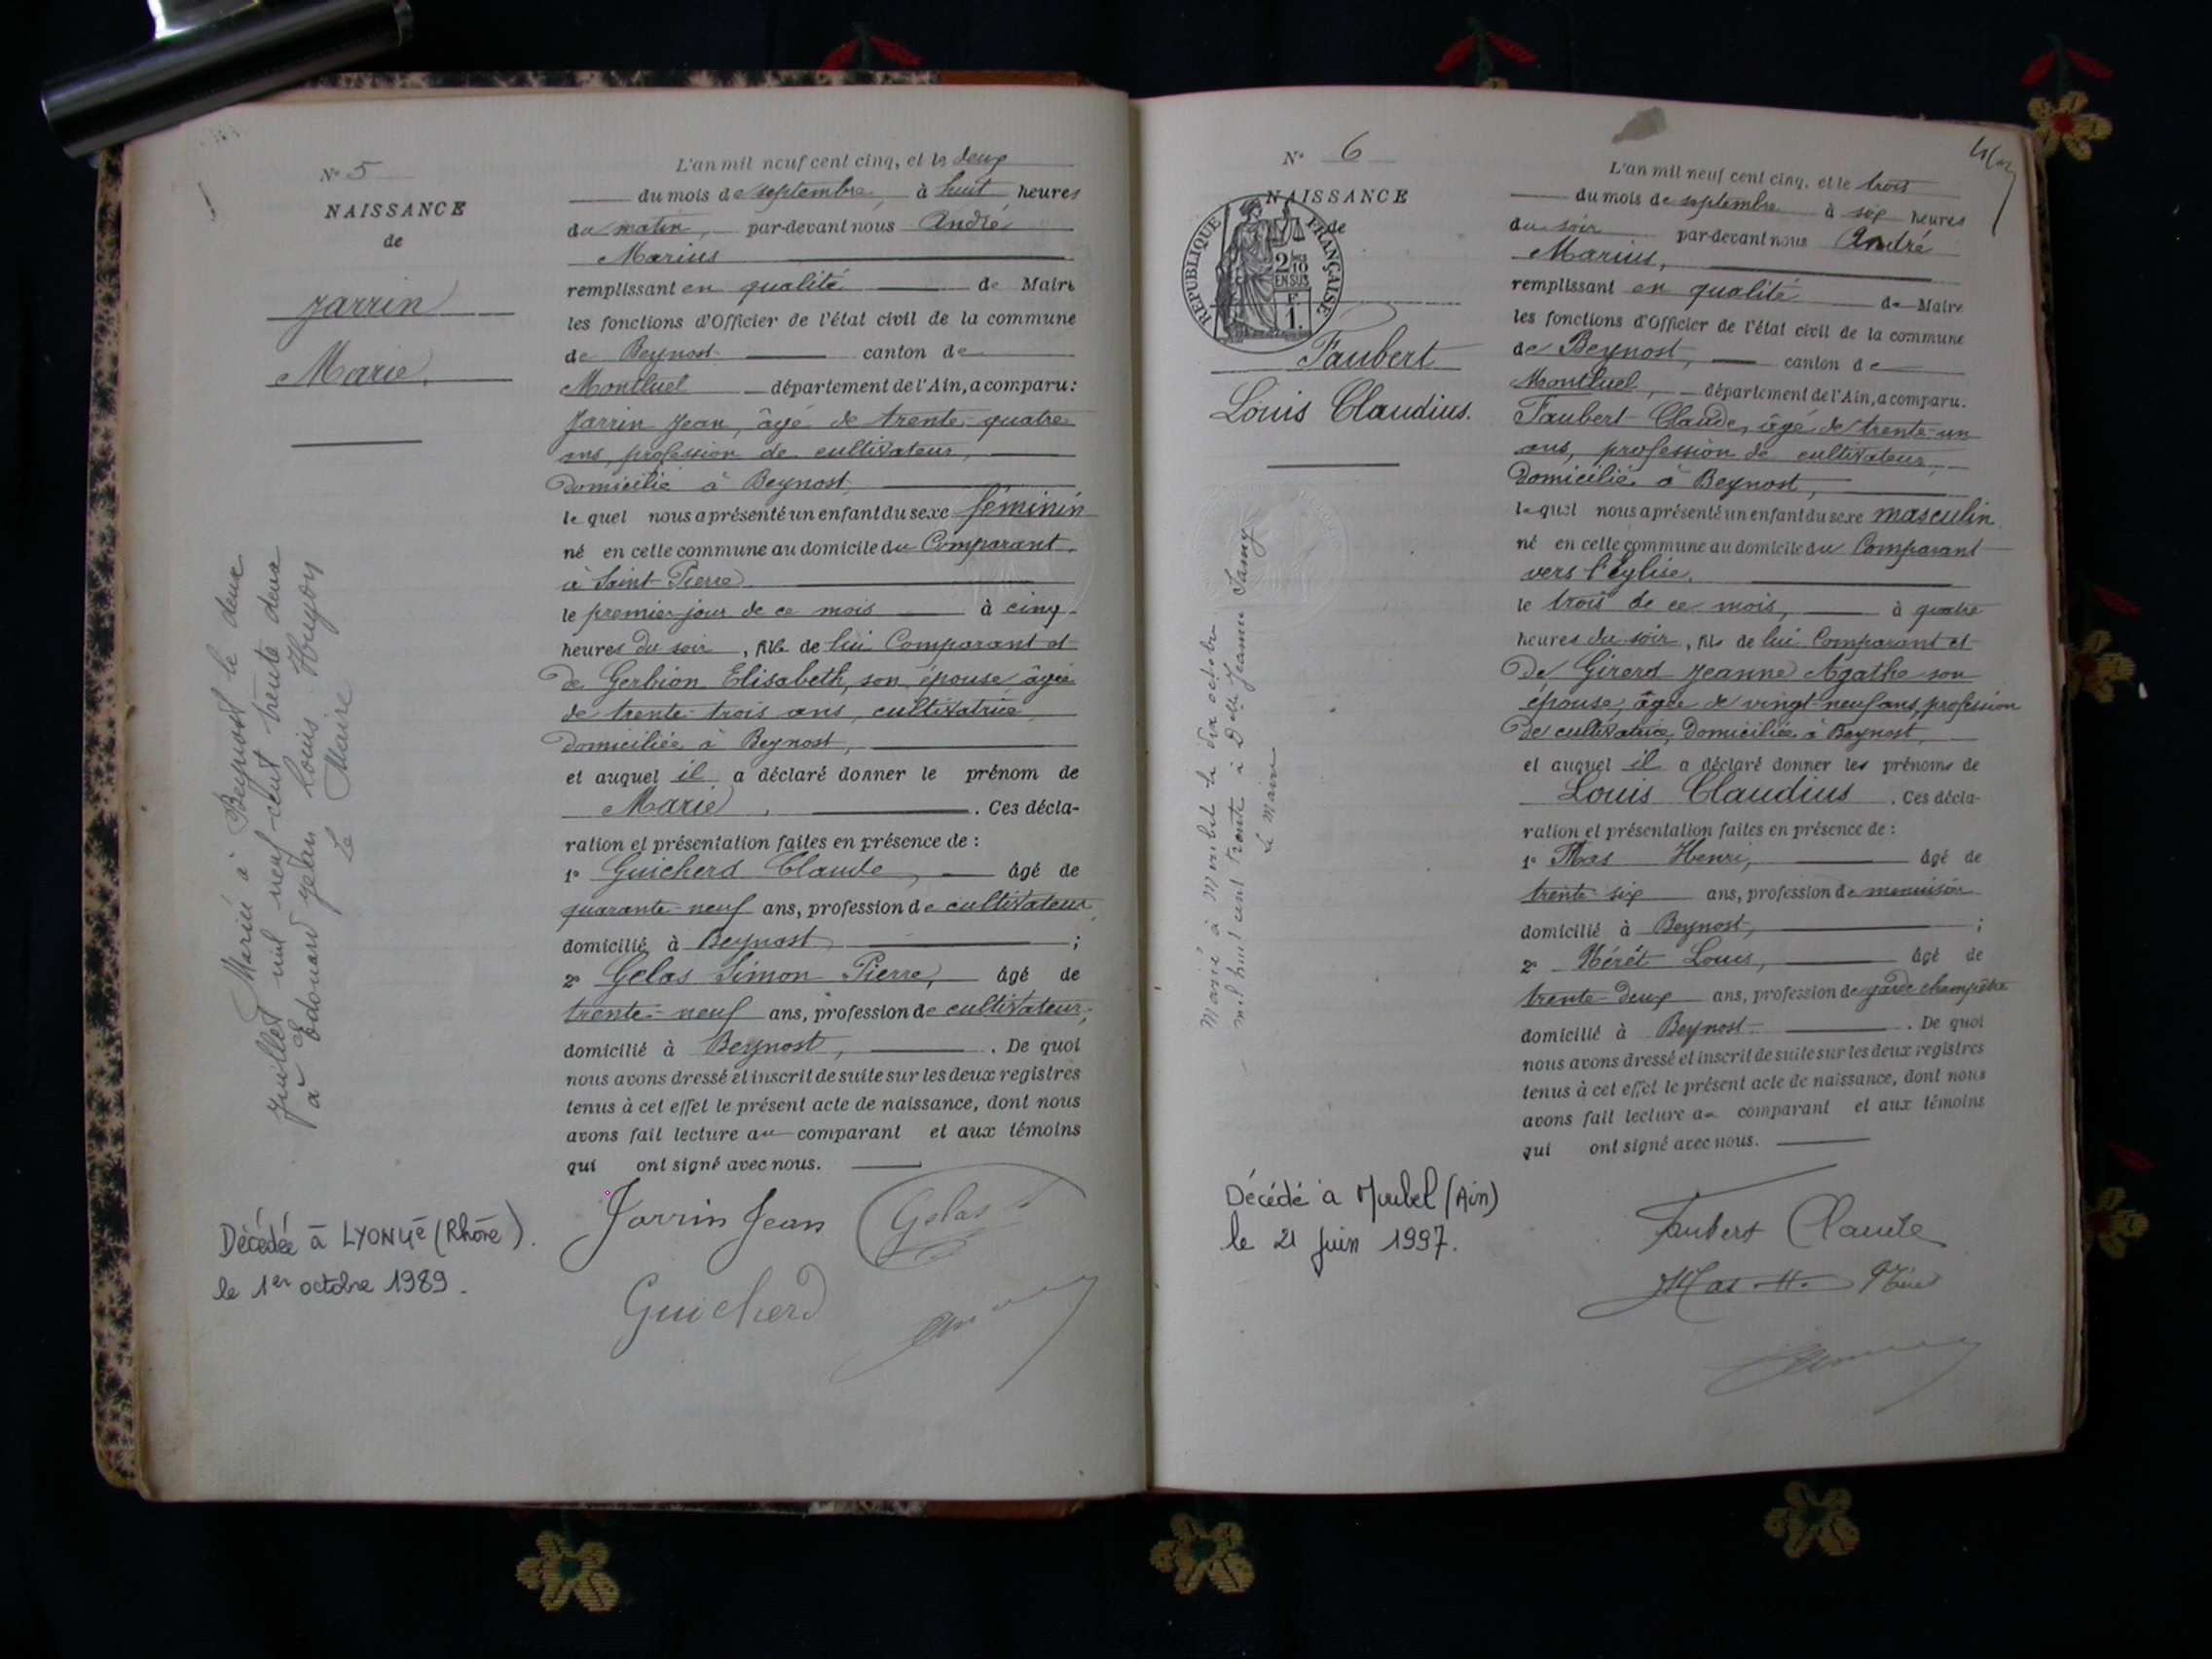 N° 5
NAISSANCE
de
Jarrin
Marie.
L'an mil neuf cent cinq, et le deux
du mois de septembre, à huit heures
du matin, par-devant nous André
Marius
remplissant en qualité de Maire
les fonctions d'Officier de l'état civil de la commune
de Beynost canton de
Montluel département de l'Ain, a comparu:
Jarrin Jean, âgé de trente-quatre
ans, profession de cultivateur,
domicilié à Beynost,
lequel nous a présenté un enfant du sexe féminin
né en cette commune au domicile du Comparant,
à Saint-Pierre
le premier jour de ce mois à cinq
heures du soir, fille de lui Comparant et
de Gerbion Elisabeth, son épouse âgée
de trente-trois ans, cultivatrice,
domiciliée à Beynost,
et auquel il a déclaré donner le prénom de
Marie. Ces décla-
ration et présentation faites en présence de :
1° Guicherd Claude, âgé de
quarante-neuf ans, profession de cultivateur,
domicilié à Beynost ;
2° Gelas Simon Pierre, âgé de
trente-neuf ans, profession de cultivateur,
domicilié à Beynost, . De quoi
nous avons dressé et inscrit de suite sur les deux registres
tenus à cet effet le présent acte de naissance, dont nous
avons fait lecture au comparant et aux témoins
qui ont signé avec nous.
Jarrin Jean Gelas
Guicherd
Mariée à Beynost le deux
Juillet mil neuf-cent trente deux
à Edouard Jean Louis
Le Maire
Décédée à LYON 4è (Rhône).
le 1er octobre 1989.
N° 6
NAISSANCE
de
RÉPUBLIQUE FRANÇAISE
2/10
EN SUS
F.
1.
Faubert
Louis Claudius.
L'an mil neuf cent cinq, et le trois
du mois de septembre à six heures
du soir par-devant nous André
Marius,
remplissant en qualité de Maire
les fonctions d'Officier de l'état civil de la commune
de Beynost, canton de
Montluel, département de l'Ain, a comparu.
Faubert Claude, âgé de trente-un
ans, profession de cultivateur,
domicilié à Beynost,
lequel nous a présenté un enfant du sexe masculin
né en cette commune au domicile du Comparant
vers l'Eglise,
le trois de ce mois, à quatre
heures du soir, fils de lui Comparant et
de Girerd Jeanne Agathe son
épouse, âgée de vingt-neuf ans, profession
de cultivatrice, domiciliée à Beynost,
et auquel il a déclaré donner les prénoms de
Louis Claudius. Ces décla-
ration et présentation faites en présence de :
1° Mas Henri, âgé de
trente-six ans, profession de menuisier
domicilié à Beynost, ;
2° Louis, âgé de
trente-deux ans, profession de garde champêtre
domicilié à Beynost . De quoi
nous avons dressé et inscrit de suite sur les deux registres
tenus à cet effet le présent acte de naissance, dont nous
avons fait lecture au comparant et aux témoins
qui ont signé avec nous.
Faubert Claude
Mas H.
Marié à le dix octobre
mil huit cent trente à Delle Jeanne
Le Maire
Décédé à (Ain)
le 21 juin 1997.